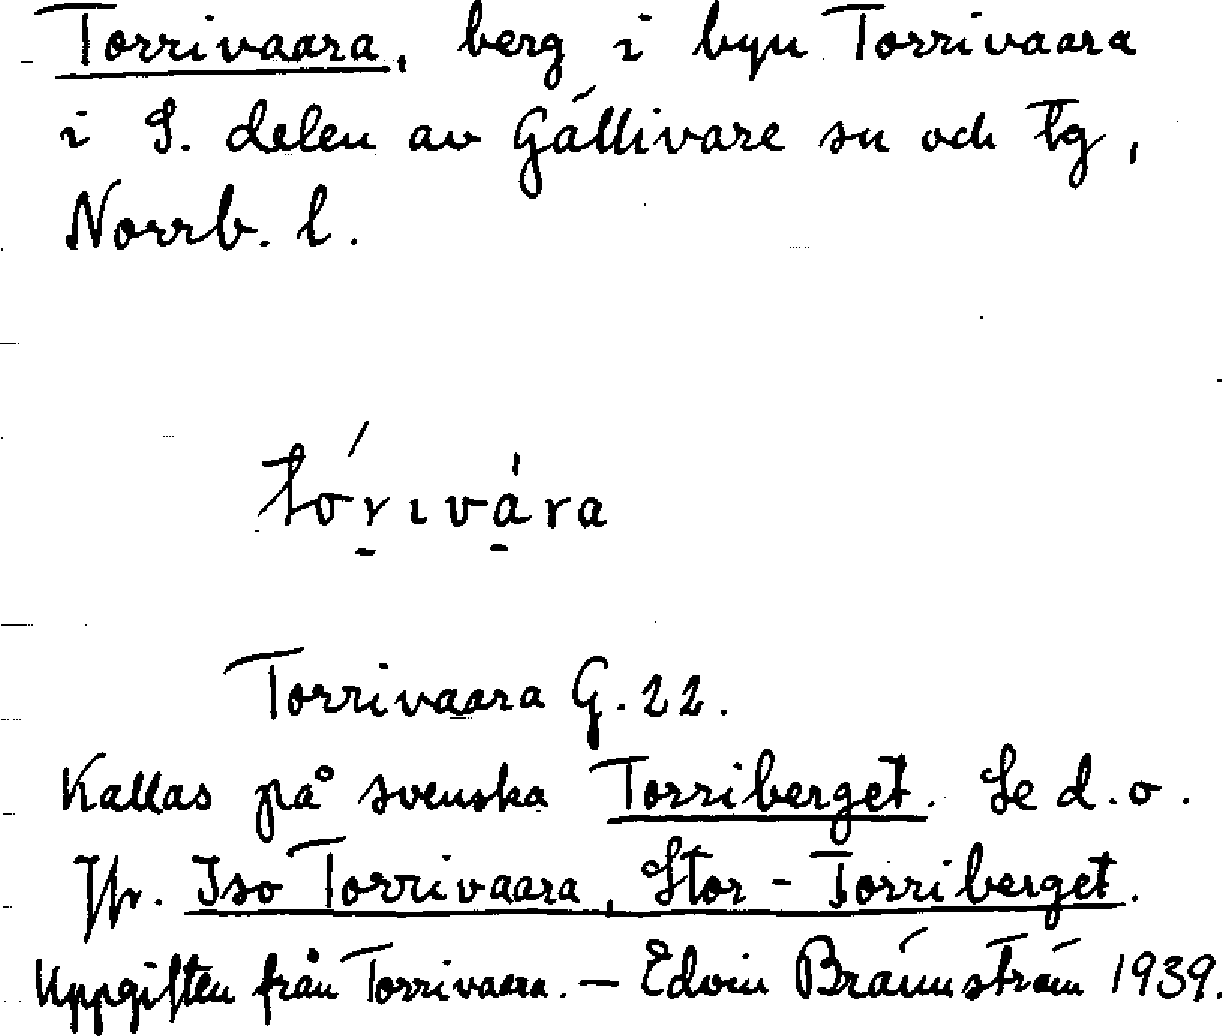 Torrivaara, berg i byn Torrivaara
i S. delen av Gällivare sn och tg,
Norrb. l.
tórivára
Torrivaara G. 22.
Kallas på svenska Torriberget. Se d. o.
Jfr. Iso Torrivaara, Stor-Torriberget.
Uppgiften från Torrivaara. — Edvin Brännström 1939.